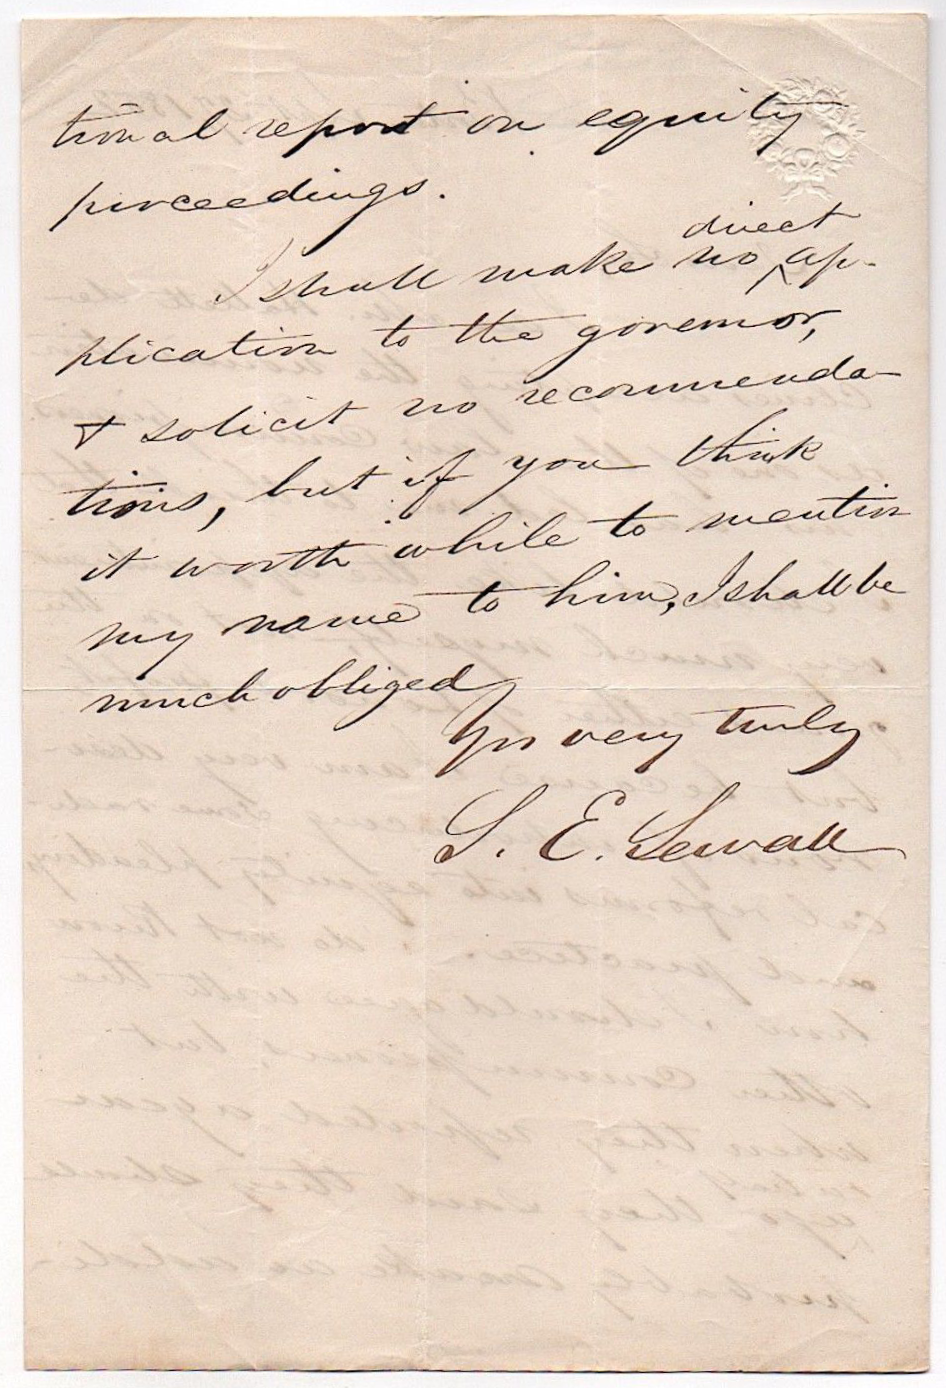 tional report on equity
proceedings.
I shall make no direct ap-
plication to the governor,
& solicit no recommenda-
tions, but if you think
it worth while to mention
my name to him, I shall be
much obliged
Yrs very truly
S. E. Sewall